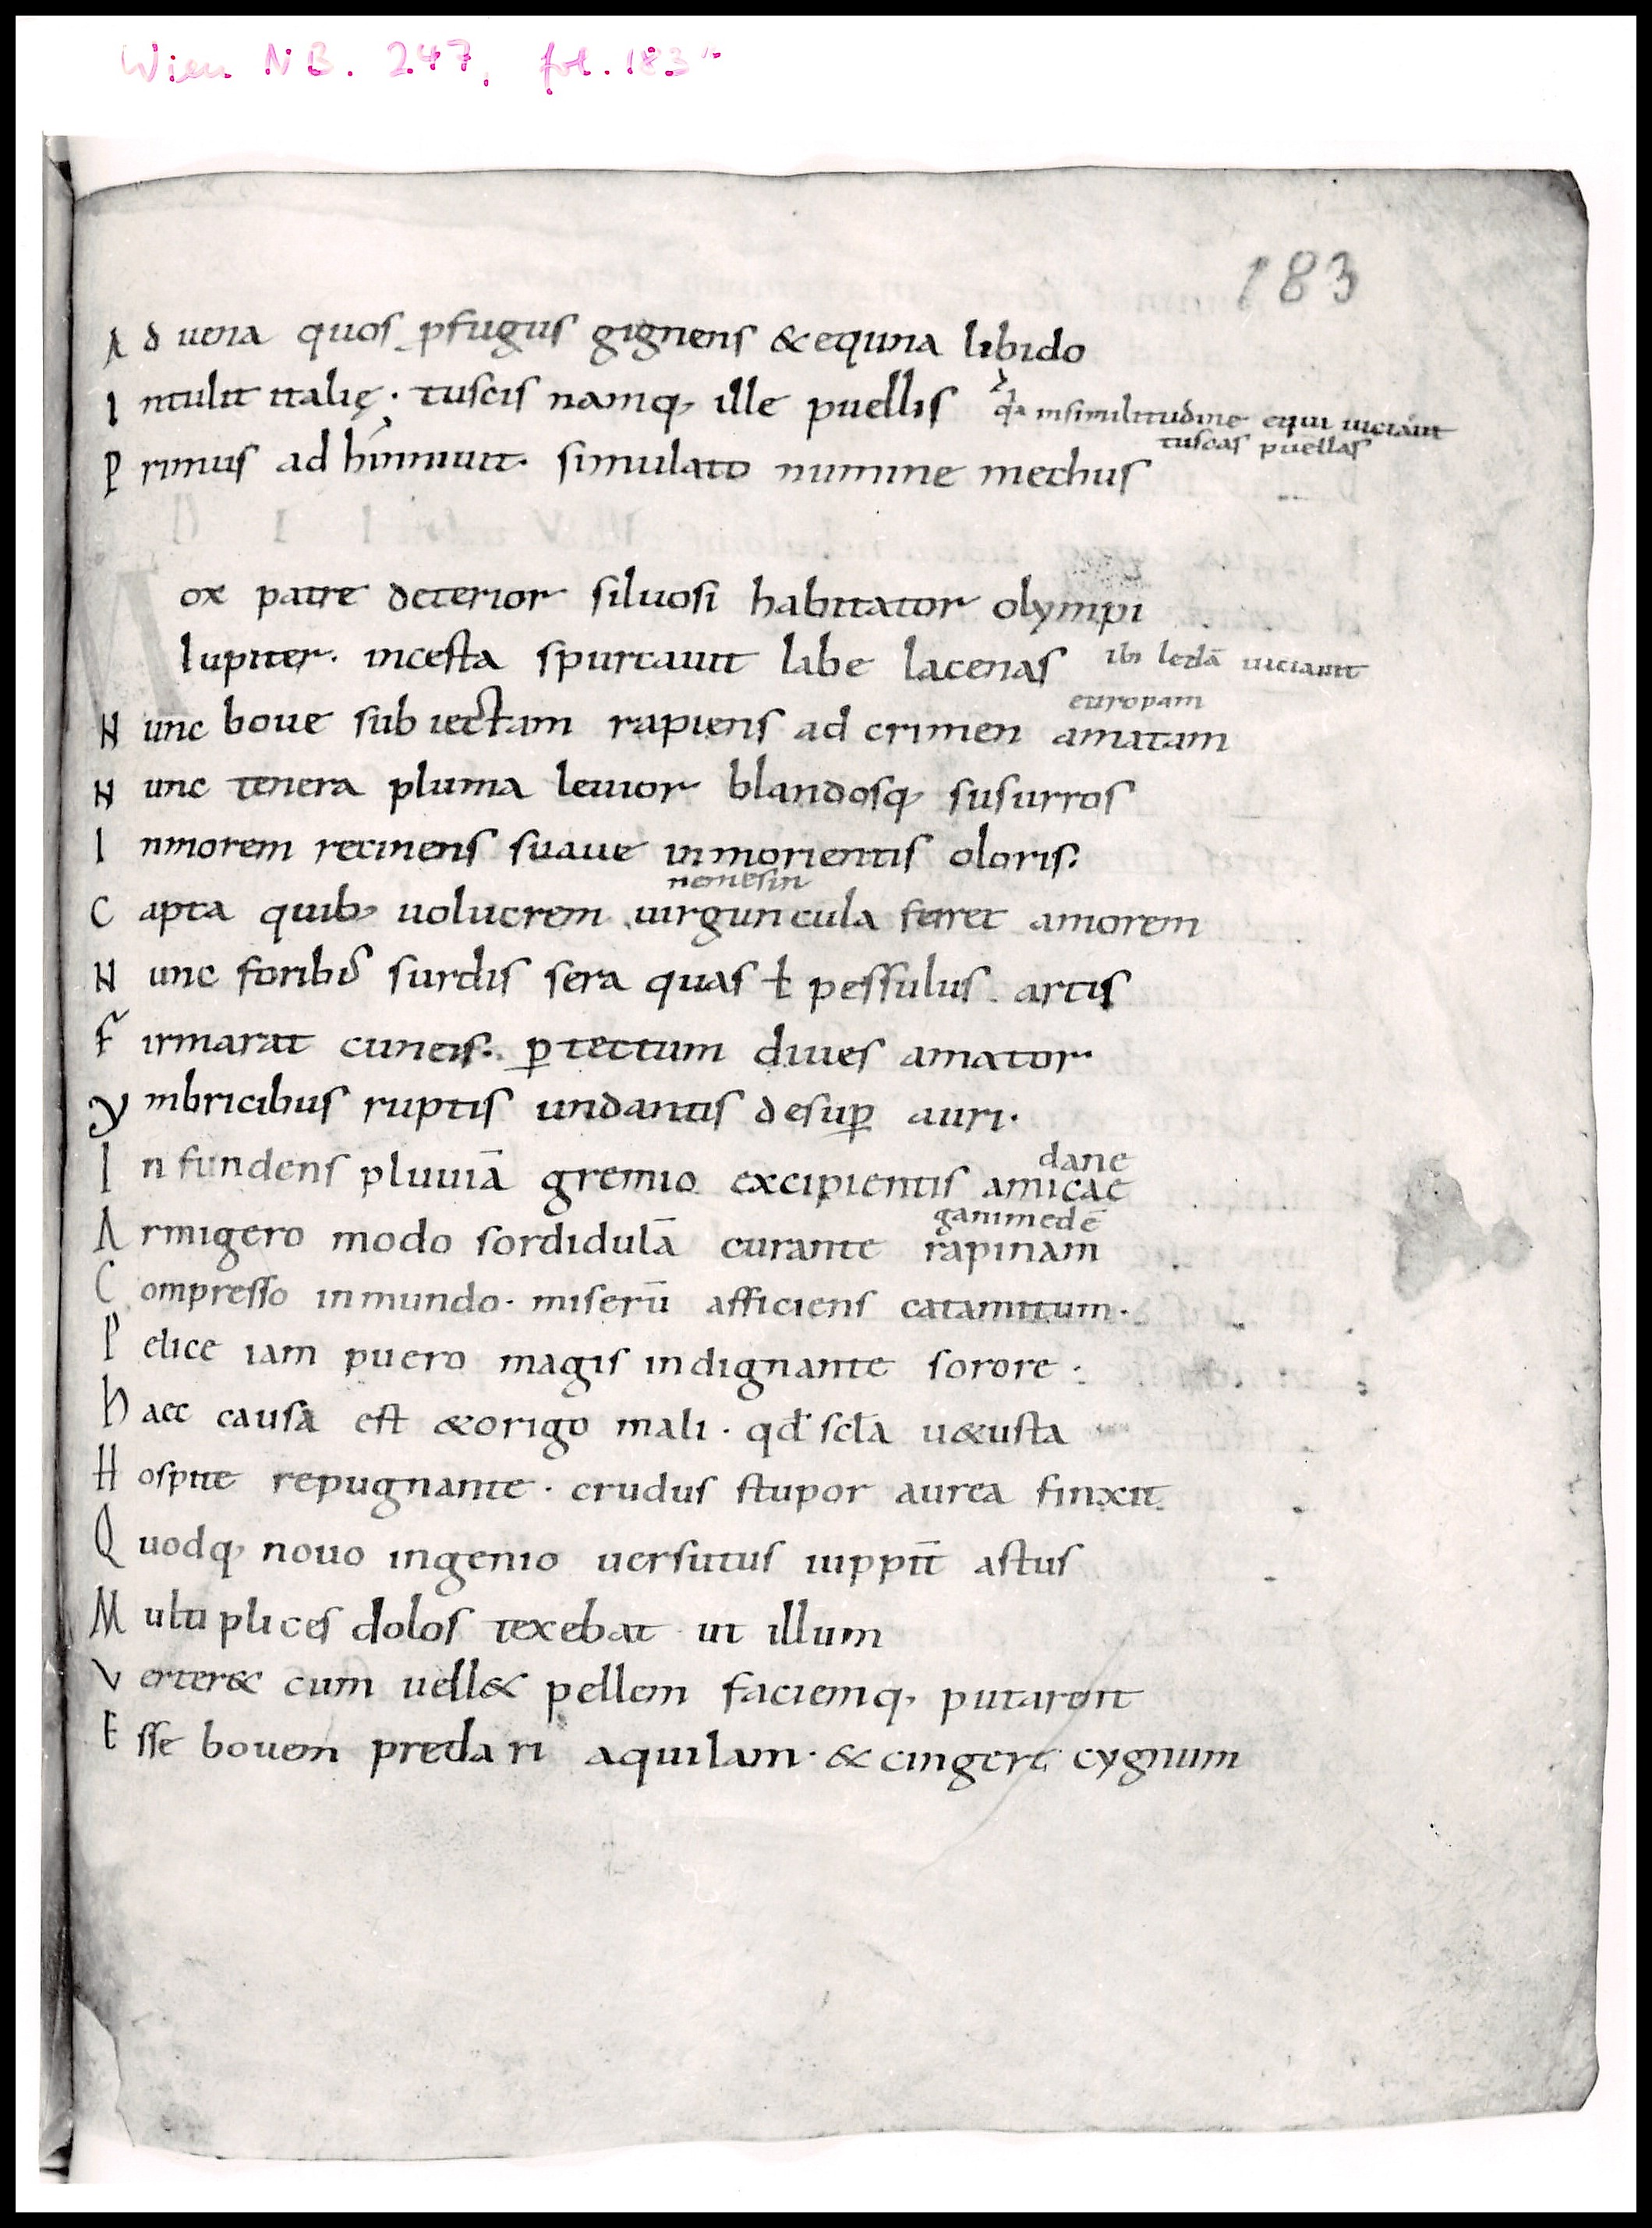 Wien NB. 247, fol. 183r
183
A d uena quos pfugus gignens & equina libido
I ntulit italię · tuscis namq, ille puellis qa insimilitudine equi uiciauit
tuscas puellas
P rimus ad hinniuit. simulato numine mechus
M ox patre deterior siluosi habitator olympi
Iupiter. incesta spurcauit labe lacenas ibi ledā uiciauit
europam
N unc boue sub iectam rapiens ad crimen amatam
N unc tenera pluma leuior blandosq, susurros
I nmorem recinens suaue inmorientis oloris.
nemesin
C apta quib, uolucrem uirguncula ferret amorem
N unc foribus surdis sera quas ł pessulus artis
F irmarat cuneis. p tectum diues amator.
Y mbricibus ruptis undantis desup auri.
dane
I n fundens pluuiā gremio excipientis amicae
ganimedē
A rmigero modo sordidulā curante rapinam
C ompresso inmundo. miserū afficiens catamitum.
P elice iam puero magis indignante sorore.
H aec causa est & origo mali. qđ scła u&usta
H ospite repugnante. crudus stupor aurea finxit
Q uodq, nouo ingenio uersutus iuppit̄ astus
M ultiplices dolos texebat ut illum
V erter& cum uell& pellem faciemq, putarent
E sse bouem predari aquilam. & cingere cygnum